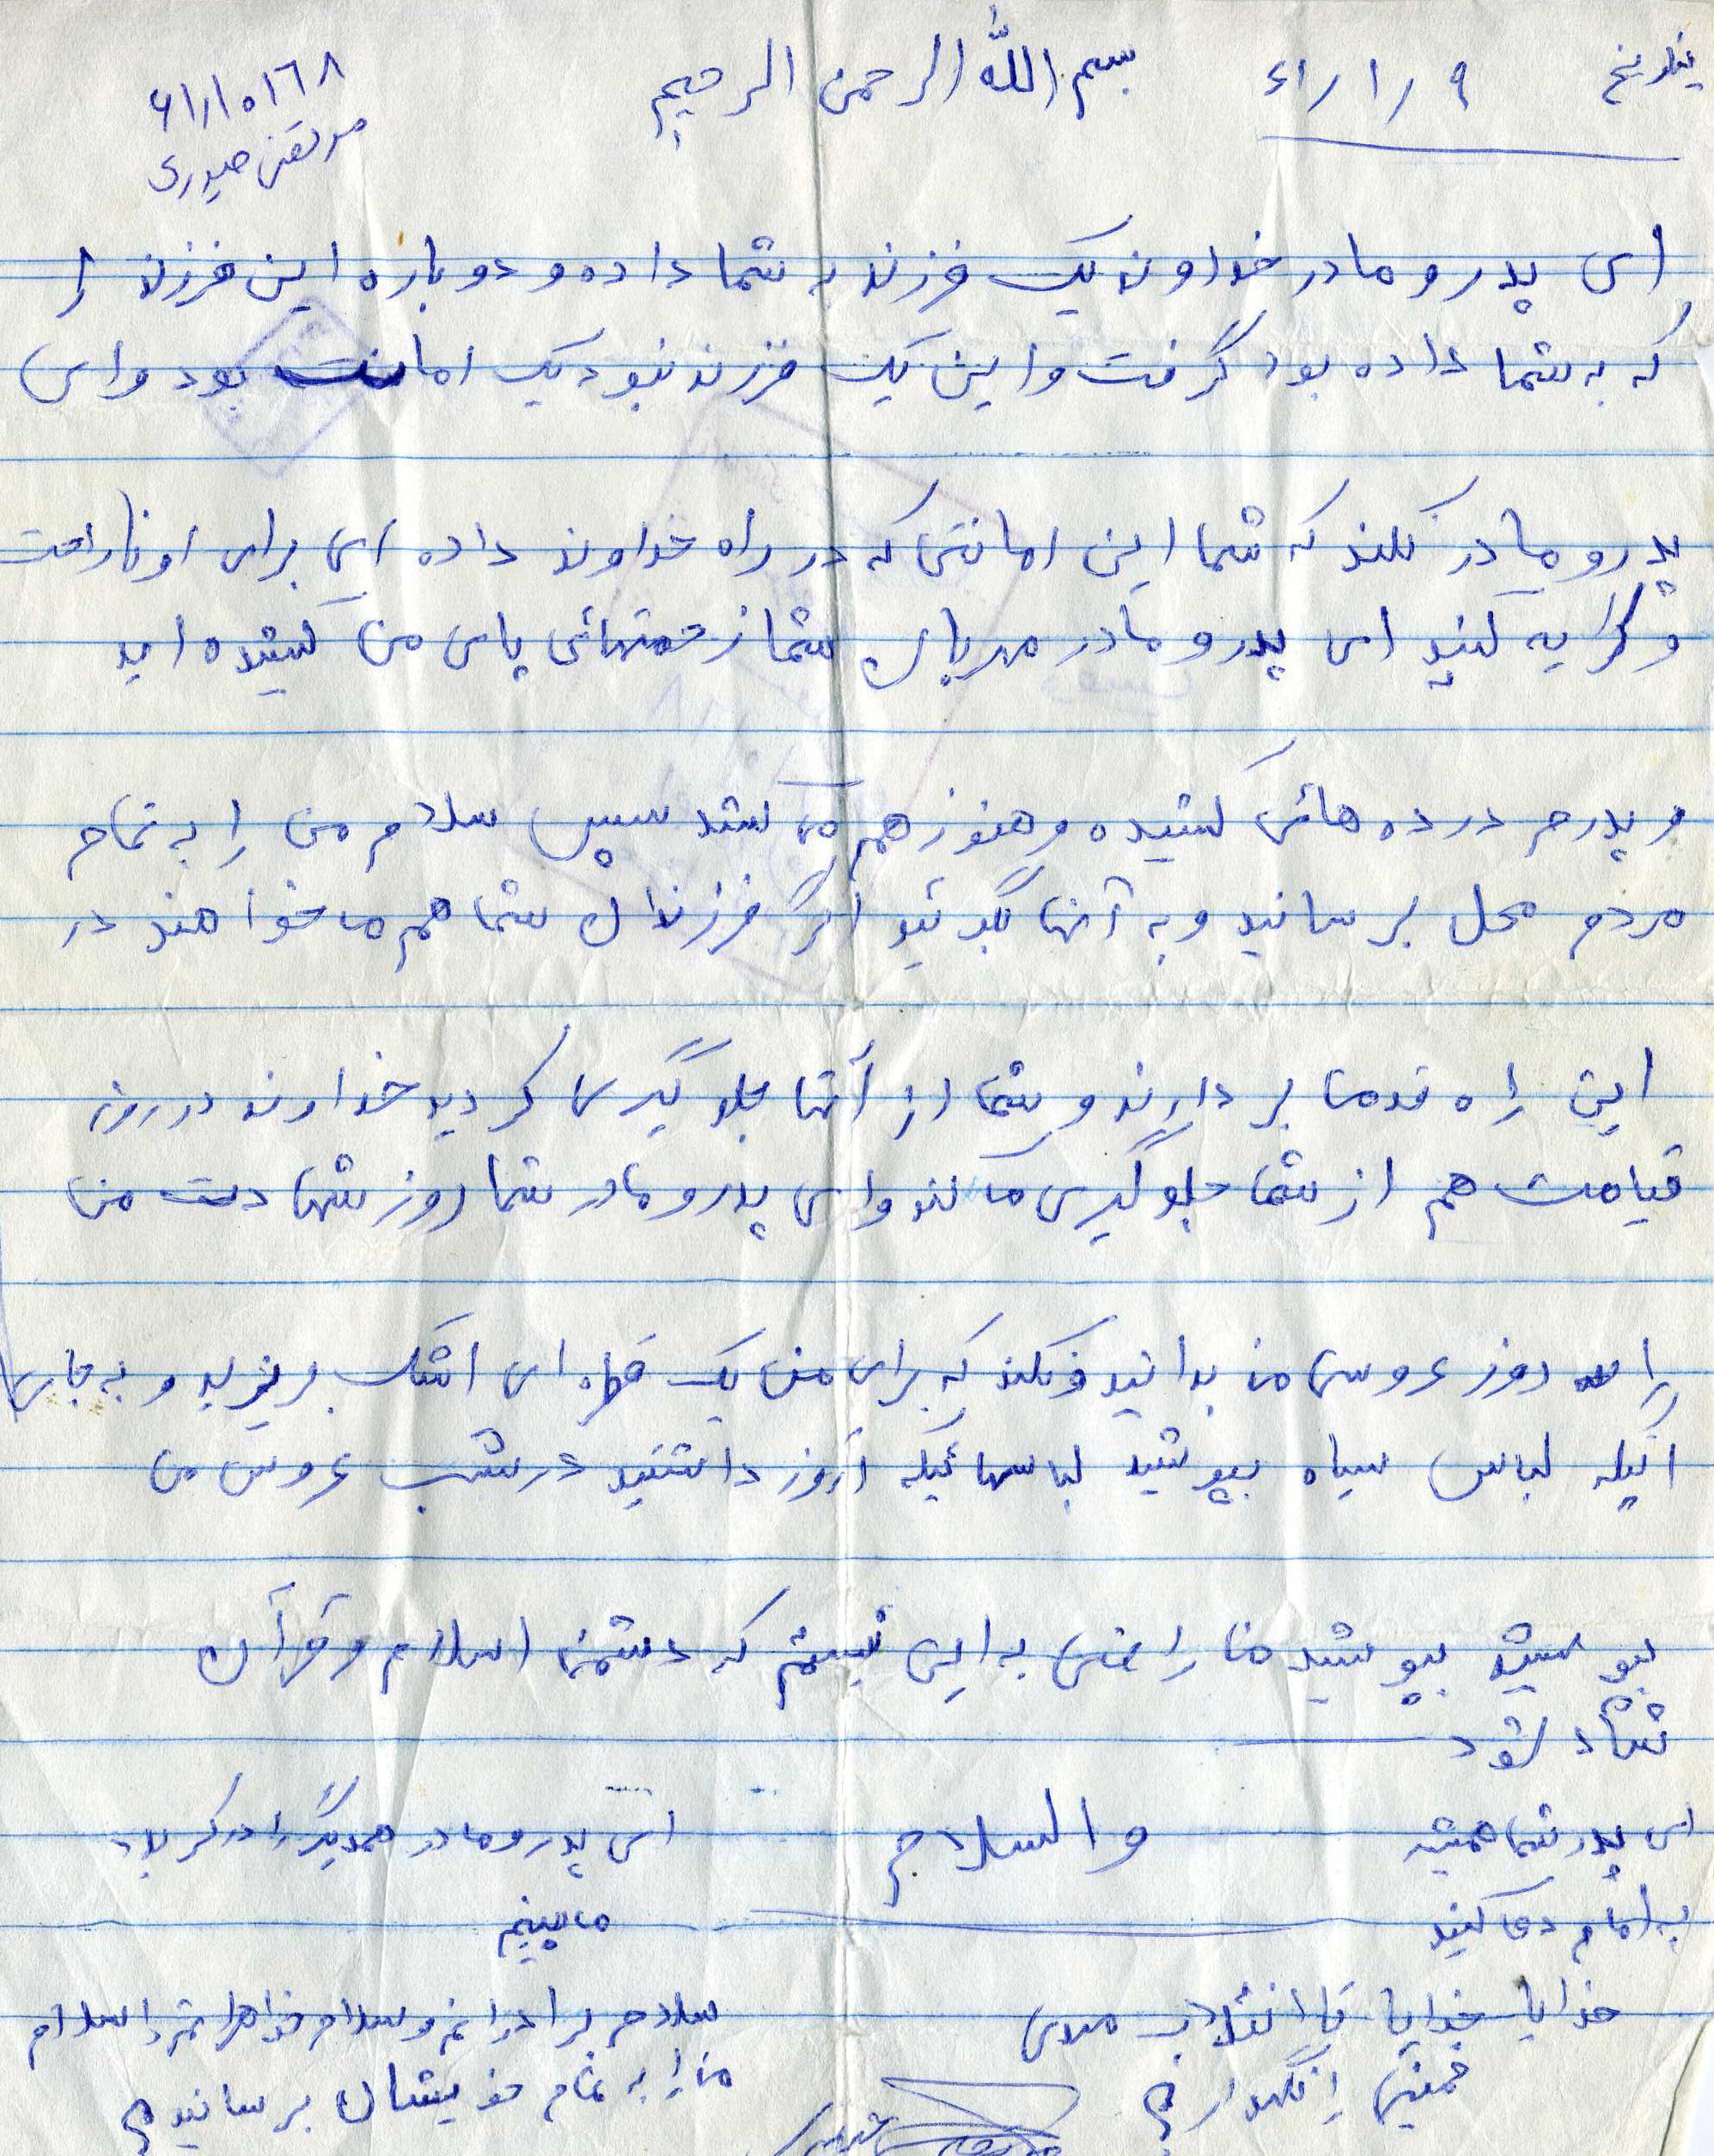 بسم الله الرحمن الرحیم
۶۱/۱۰۱۶۸
ای پدر و مادر خداوند یک فرزند به شما داده و دوباره این فرزند را
که به شما داده بود گرفت و این یک فرزند نبود یک امانت بود و ای
پدر و مادر نکند که شما این امانتی که در راه خداوند داده ای برای او ناراحت
و گرایه کنید ای پدر و مادر مهربان شما زحمتهائی پای من کشیده اید
و پدرم درده هائی کشیده و هنوز هم می کشد سپس سلام من را به تمام
مردم محل برسانید و به آنها بگوئید اگر فرزندان شما هم می خواهند در
این راه قدمی بردارند و شما از آنها جلوگیری کردید خداوند در روز
قیامت هم از شما جلوگیری می کند و ای پدر و مادر شما روز شهادت من
را روز عروسی من بدانید و نکند که برای من یک قطره ای اشک بریزید و به جای
آنیکه لباس سیاه بپوشید لباسهائیکه آرزو داشتید در شب عروسی من
بپوشید بپوشید من راضی به این نیستم که دشمن اسلام و قرآن
شاد شود
ای پدر شما همیشه
به امام دعا کنید
والسلام
ای پدر و مادر همدیگر را در کربلا
می بینیم
خدایا خدایا تا انقلاب مهدی
خمینی را نگهدار
سلام برادرانم و سلام خواهرانم و اسلام
من را به تمام خویشان برسانید